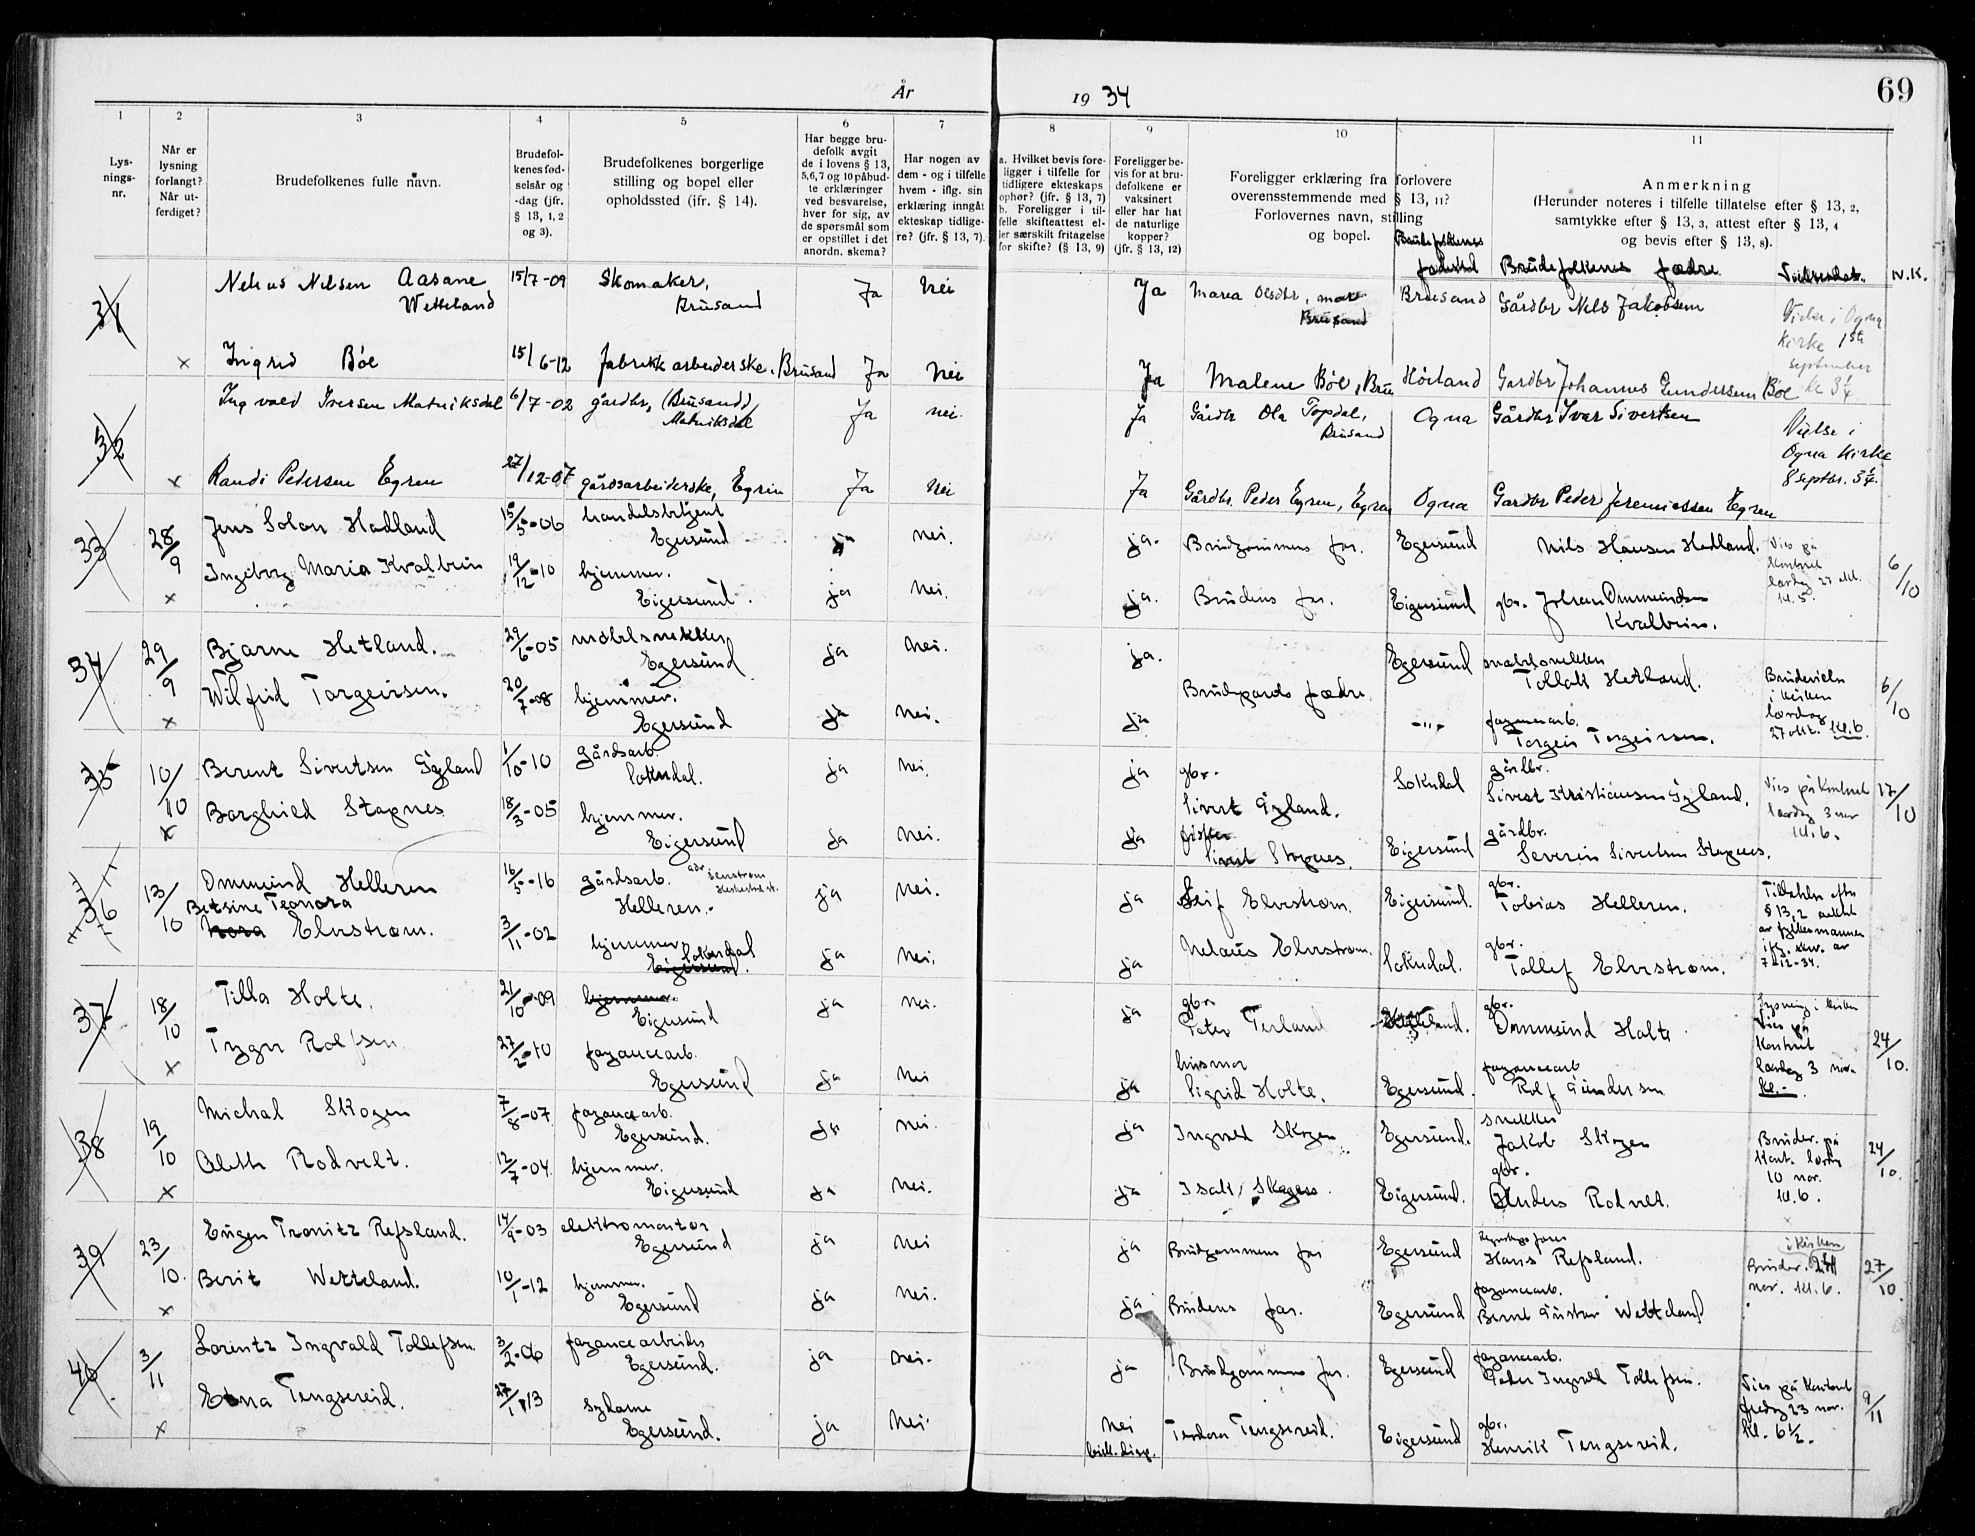 År 1934
69
1 2 3 4 5 6 7 8 9 10 11
Lys-
nings-
nr.
Når er
lysning
forlangt?
Når ut-
ferdiget?
Brudefolkenes fulle navn.
Brudefol-
kenes fød-
selsår og
-dag (jfr.
§ 13, 1, 2
og 3).
Brudefolkenes borgerlige
stilling og bopel eller
opholdssted (jfr. § 14).
Har begge bru-
defolk avgit
de i lovens § 13,
5,6,7 og 10 påbud-
te erklæringer
ved besvarelse,
hver for sig, av
de spørsmål som
er opstillet i det
anordn. skema?
Har nogen av
dem - og i tilfelle
hvem - iflg. sin
erklæring inngåt
ekteskap tidlige-
re? (jfr. § 13, 7).
a. Hvilket bevis fore-
ligger i tilfelle for
tidligere ekteskaps
ophør? (jfr. § 13, 7)
b. Foreligger i til-
felle skifteattest el-
ler særskilt fritagelse
for skifte? (§ 13, 9)
Foreligger be-
vis for at bru-
defolkene er
vaksinert
eller har hat
de naturlige
kopper?
(jfr. § 13, 12)
Foreligger erklæring fra forlovere
overensstemmende med § 13, 11?
Forlovernes navn, stilling
og bopel.
Brudefolkenes
fødested
Anmerkning
(Herunder noteres i tilfelle tillatelse efter § 13, 2,
samtykke efter § 13, 3, attest efter § 13, 4
og bevis efter § 13, 8).
Brudefolkenes fædre
N.K.
31 Nelius Nilsen Aasane 15/7-09 Skomaker, Ja Nei Ja Maria Olsdtr, Brusand Gårdbr Nils Jakobsen
Wetteland Brusand Brusand
Vielse i Ogna
Kirke 1ste
september
kl 3 1/4
x Ingrid Bøe 15/6-12 fabrikkarbeiderske, Brusand Ja Nei Ja Malene Bøe, Bru Høiland Gardbr Johannes Gundersen Bøe
32 Ingvald Iversen Matniksdal 6/7-02 gårdbr, (Brusand) Ja nei. Ja Gårdbr Ola Topdal, Ogna Gårdbr Ivar Sivertsen
Matniksdal Brusand
Vielse i
Ogna Kirke
8 septbr. 3 1/4.
x Randi Petersen Egren 27/12-07 gårdsarbeiderske, Egren Ja nei Ja Gårdbr. Peder Egren, Egren Ogna Gardbr Peder Jeremiassen Egren
33 28/9 Jens Solon Hadland 15/5-06 handelsbetjent ja nei. ja. Brudgommens far. Egersund Nils Hansen Hadland.
Egersund
Vies på
kontoret
lørdag 27 okt.
kl. 5.
6/10
x Ingeborg Maria Kvalbein 19/12-10 hjemmev. ja Nei. ja. Brudens far. Eigersund gbr. Johan Ommundsen
Eigersund. Kvalbein.
34 29/9 Bjarne Hetland. 29/6-05 møbelsnekker ja Nei. ja. Egersund møbelsnekker
Egersund Tollak Hetland.
Brudgards fædre.
Brudevielse
i kirken
lørdag
27 okt. kl. 6.
6/10
x Wilfrid Torgeirsen. 20/7-08 hjemmev. ja Nei. ja -"- fayancearb.
Egersund Torgeir Torgeirsen.
35 10/10 Berent Sivertsen Gyland 1/10-10 gårdsarb. ja Nei. ja gbr. Sokndal gårdbr.
Sokndal. Sivert Gyland. Sivert Kristiansen Gyland.
Vies på kontoret
lørdag 3 nov
kl. 6.
17/10
x Borghild Stapnes 18/3-05 hjemmev. ja Nei. ja Eigersund gårdbr.
Eigersund Stapnes. Severin Sivertsen Stapnes.
36 13/10 Ommund Helleren 16/5-16 gårdsarb. ja Nei. ja Leif Elvestrøm. Eigersund. gbr.
Helleren. Tobias Helleren.
Tillatelse efter
§ 13,2 meddelt
av fylkesmannen
7-12-34.
Betsine Teonora
Nora Elvestrøm. 3/11-02 hjemmev. ja Nei. ja Nelaus Elvestrøm. Sokndal. gbr.
Sokndal Tollef Elvestrøm.
Eigersund.
37 18/10 Tilla Holte. 21/10-09 hjemmev. ja Nei. ja gbr. gbr.
Eigersund Peter Terland Ommund Holte.
lysning i kirken
Vies på
kontoret
lørdag 3 nov.
kl. -
24/10.
x Trygve Rolfsen 27/2-10 fayancearb. ja Nei ja husmor Egersund. fayancearb
Egersund Sigrid Holte. Rolf Gundersen
38 19/10 Michal Skogen 7/8-07 fayancearb. ja nei. ja Ingvald Skogen Egersund. snekker
Egersund. Jakob Skogen
Bruder. på
kont. lørdag
10 nov.
kl. 6.
24/10.
x Aleth Rodvelt. 12/7-04. hjemmev. ja Nei. ja Isak Skogen. Eigersund. gbr.
Eigersund Anders Rodvelt.
39 23/10. Eugen Tronitz Refsland. 14/9-03 elektromontør ja Nei ja Brudgommens far Egersund
Egersund Hans Refsland.
i kirken
Bruder. 24
nov. kl. 6.
27/10.
x Berit Wetteland. 10/1-12 hjemmev. ja Nei. ja Brudens far. Egersund fayancearb.
Egersund Bernt Gustav Wetteland
40 3/11 Lorentz Ingvald Tollefsen. 3/2-06 fayancearbeider ja nei. ja Brudgommens far. Egersund fayancearb.
Egersund. Peder Ingvald Tollefsen.
Vies på kontoret
fredag 23 nov.
kl. 6 1/2.
9/11
x Edna Tengsereid. 27/1-13 sydame ja Nei. Nei Teodora Tengsereid. Eigersund gbr.
Egersund. Henrik Tengsereid.